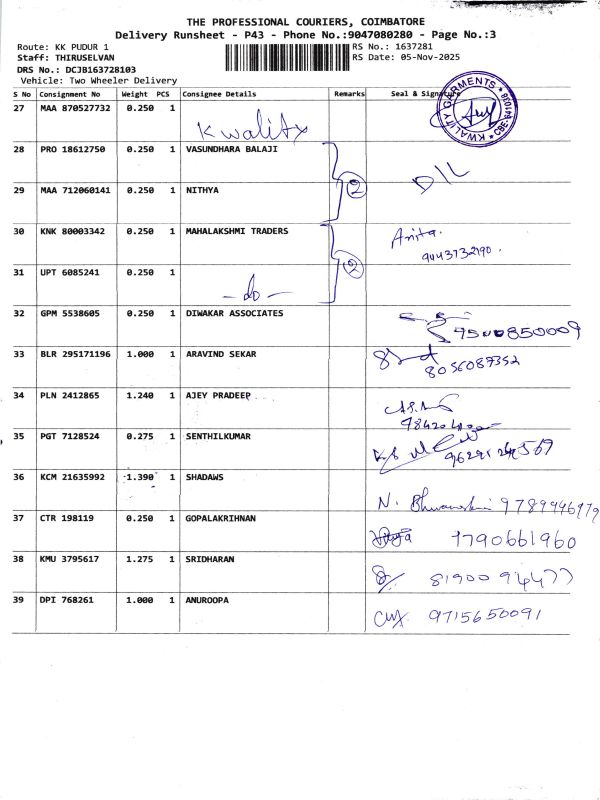 THE PROFESSIONAL COURIERS, COIMBATORE
Delivery Runsheet - P43 - Phone No.:9047080280 - Page No.:3
Route: KK PUDUR 1 RS No.: 1637281
Staff: THIRUSELVAN RS Date: 05-Nov-2025
DRS No.: DCJB163728103
Vehicle: Two Wheeler Delivery
S No Consignment No Weight PCS Consignee Details Remarks Seal & Signature
KWALITY GARMENTS CBE-641038
27 MAA 870527732 0.250 1
Kwality
28 PRO 18612750 0.250 1 VASUNDHARA BALAJI
2 DIL
29 MAA 712060141 0.250 1 NITHYA
30 KNK 80003342 0.250 1 MAHALAKSHMI TRADERS Anita.
9443732190.
2
31 UPT 6085241 0.250 1
- do -
32 GPM 5538605 0.250 1 DIWAKAR ASSOCIATES
9500850009
33 BLR 295171196 1.000 1 ARAVIND SEKAR
8056087352
34 PLN 2412865 1.240 1 AJEY PRADEEP
35 PGT 7128524 0.275 1 SENTHILKUMAR
36 KCM 21635992 1.390 1 SHADAWS
N. 9789946979
37 CTR 198119 0.250 1 GOPALAKRIHNAN
1790661960
38 KMU 3795617 1.275 1 SRIDHARAN
81900 94477
39 DPI 768261 1.000 1 ANUROOPA
9715650091